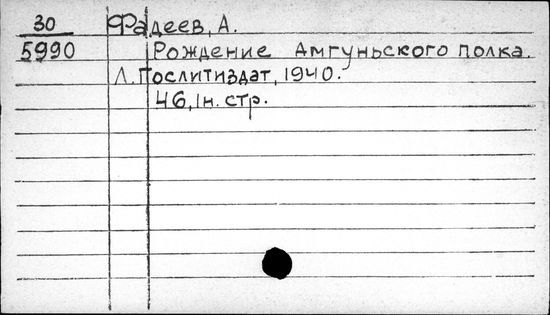 30 Фадеев, А.
5990 Рождение Амгуньского полка.
Л. Гослитиздат, 1940.
46, 1н. стр.